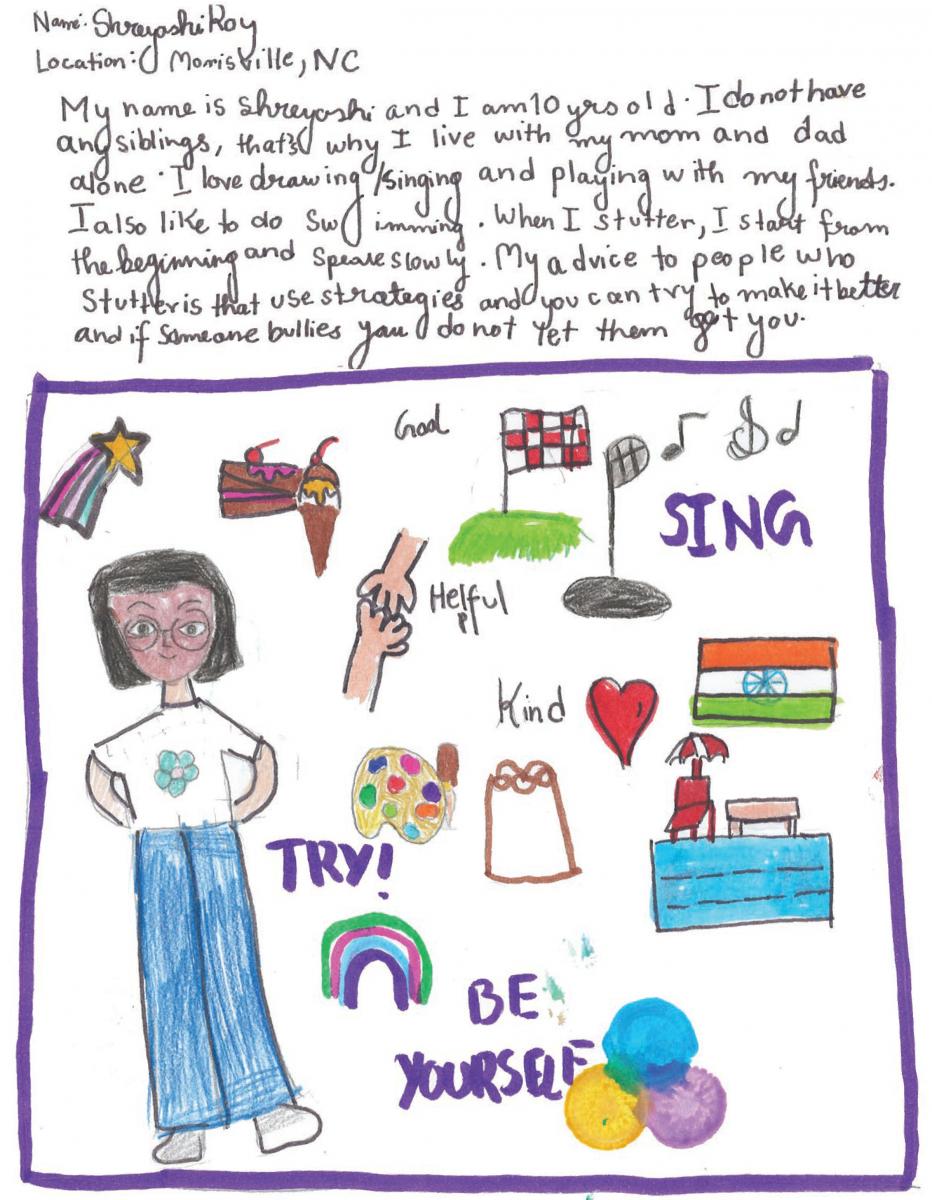 Name: Shreyoshi Roy
Location: Morrisville, NC
My name is Shreyoshi and I am 10 yrs old. I do not have
any siblings, that's why I live with my mom and dad
alone. I love drawing/singing and playing with my friends.
I also like to do swimming. When I stutter, I start from
the beginning and speak slowly. My advice to people who
stutter is that use strategies and you can try to make it better
and if someone bullies you do not let them get you.
Goal
SING
Helful
p
Kind
TRY!
BE
YOURSELF